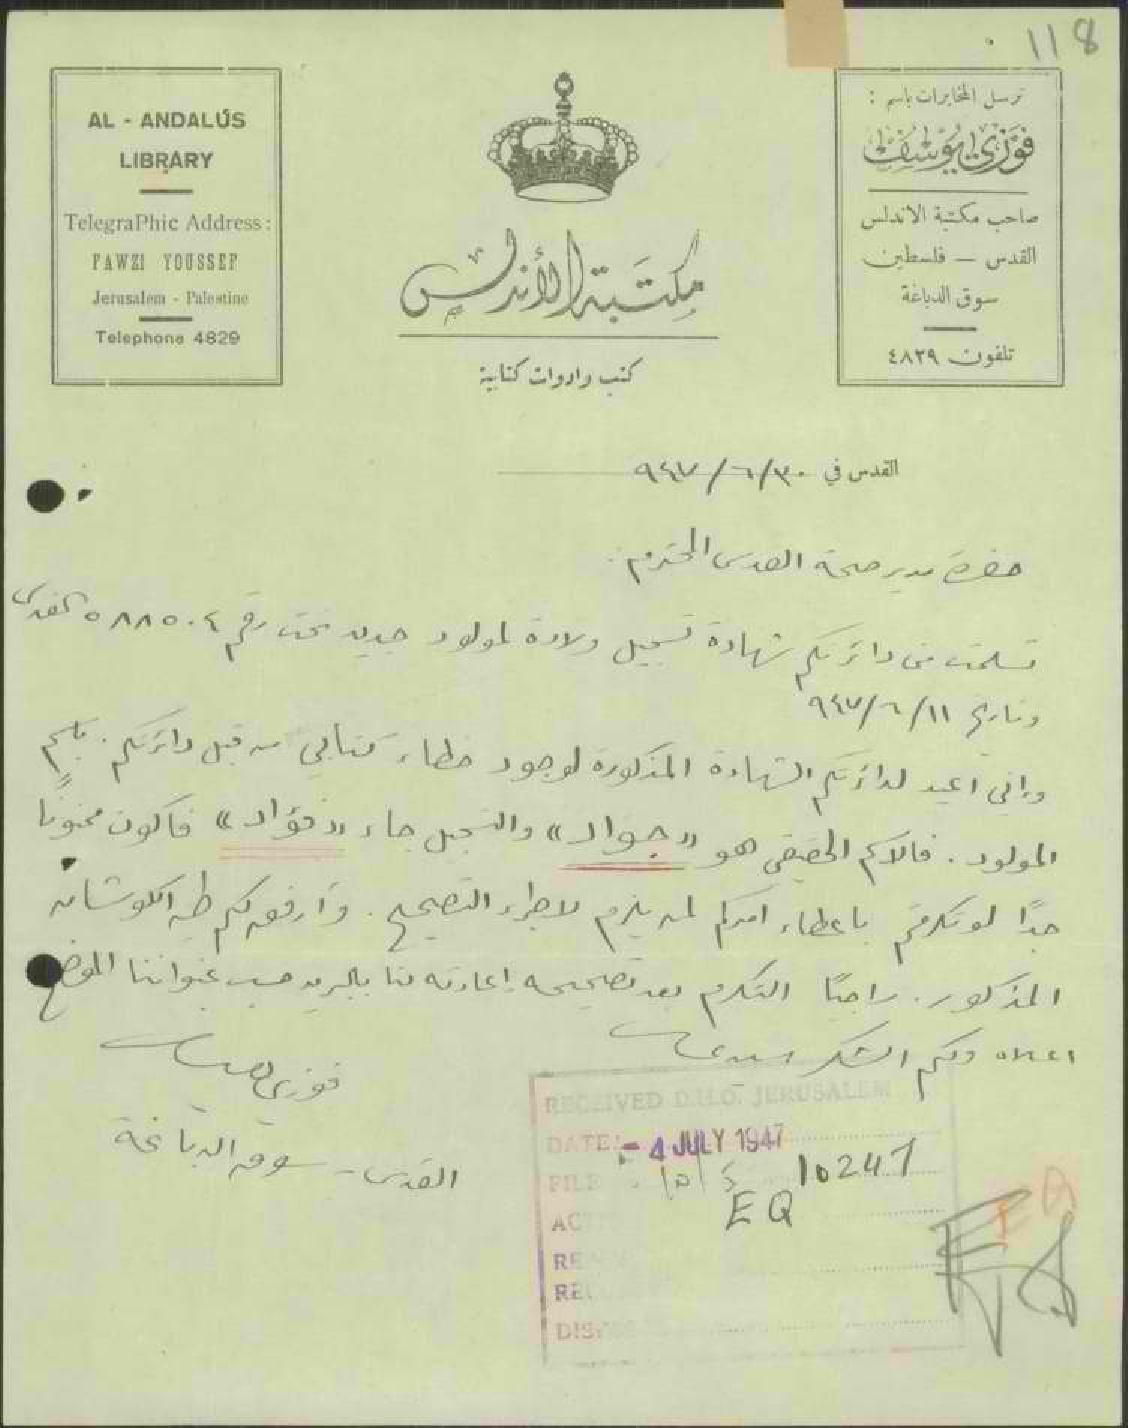 118
AL - ANDALUS
LIBRARY
TelegraPhic Address:
FAWZI YOUSSEF
Jerusalem - Palestine
Telephone 4829
مكتبة الأندلس
كتب وادوات كتابية
ترسل المخابرات باسم :
فوزي يوسف
صاحب مكتبة الاندلس
القدس – فلسطين
سوق الدباغة
تلفون ٤٨٢٩
القدس في ٩٤٧/٦/٣٠
حضرة مدير صحة القدس المحترم.
تسلمت من دائرتكم شهادة تسجيل ولادة لمولود جديد تحت رقم ٥٨٨٥٠٤ القدس
وتاريخ ٩٤٧/٦/١١
واني اعيد لدائرتكم الشهادة المذكورة لوجود خطاء كتابي من قبل دائرتكم. باسم
المولود. فالاسم الحقيقي هو «جواد» والتسجيل جاء «فؤاد» فاكون ممنونًا
جدًا لو تكرمتم باعطاء امركم لمن يلزم لاجراء التصحيح. وارفق لكم طيه الكوشان
المذكور. راجيًا التكرم بعد تصحيحه اعادته لنا بالبريد حسب عنواننا الموضح
ولكم الشكر سيدي
فوزي يوسف
القدس - سوق الدباغة
RECEIVED D.H.O. JERUSALEM
DATE: - 4 JULY 1947
FILE 10247
EQ